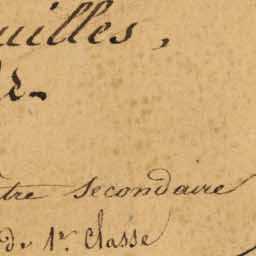 uilles,
tre secondaire
de 1.re classe